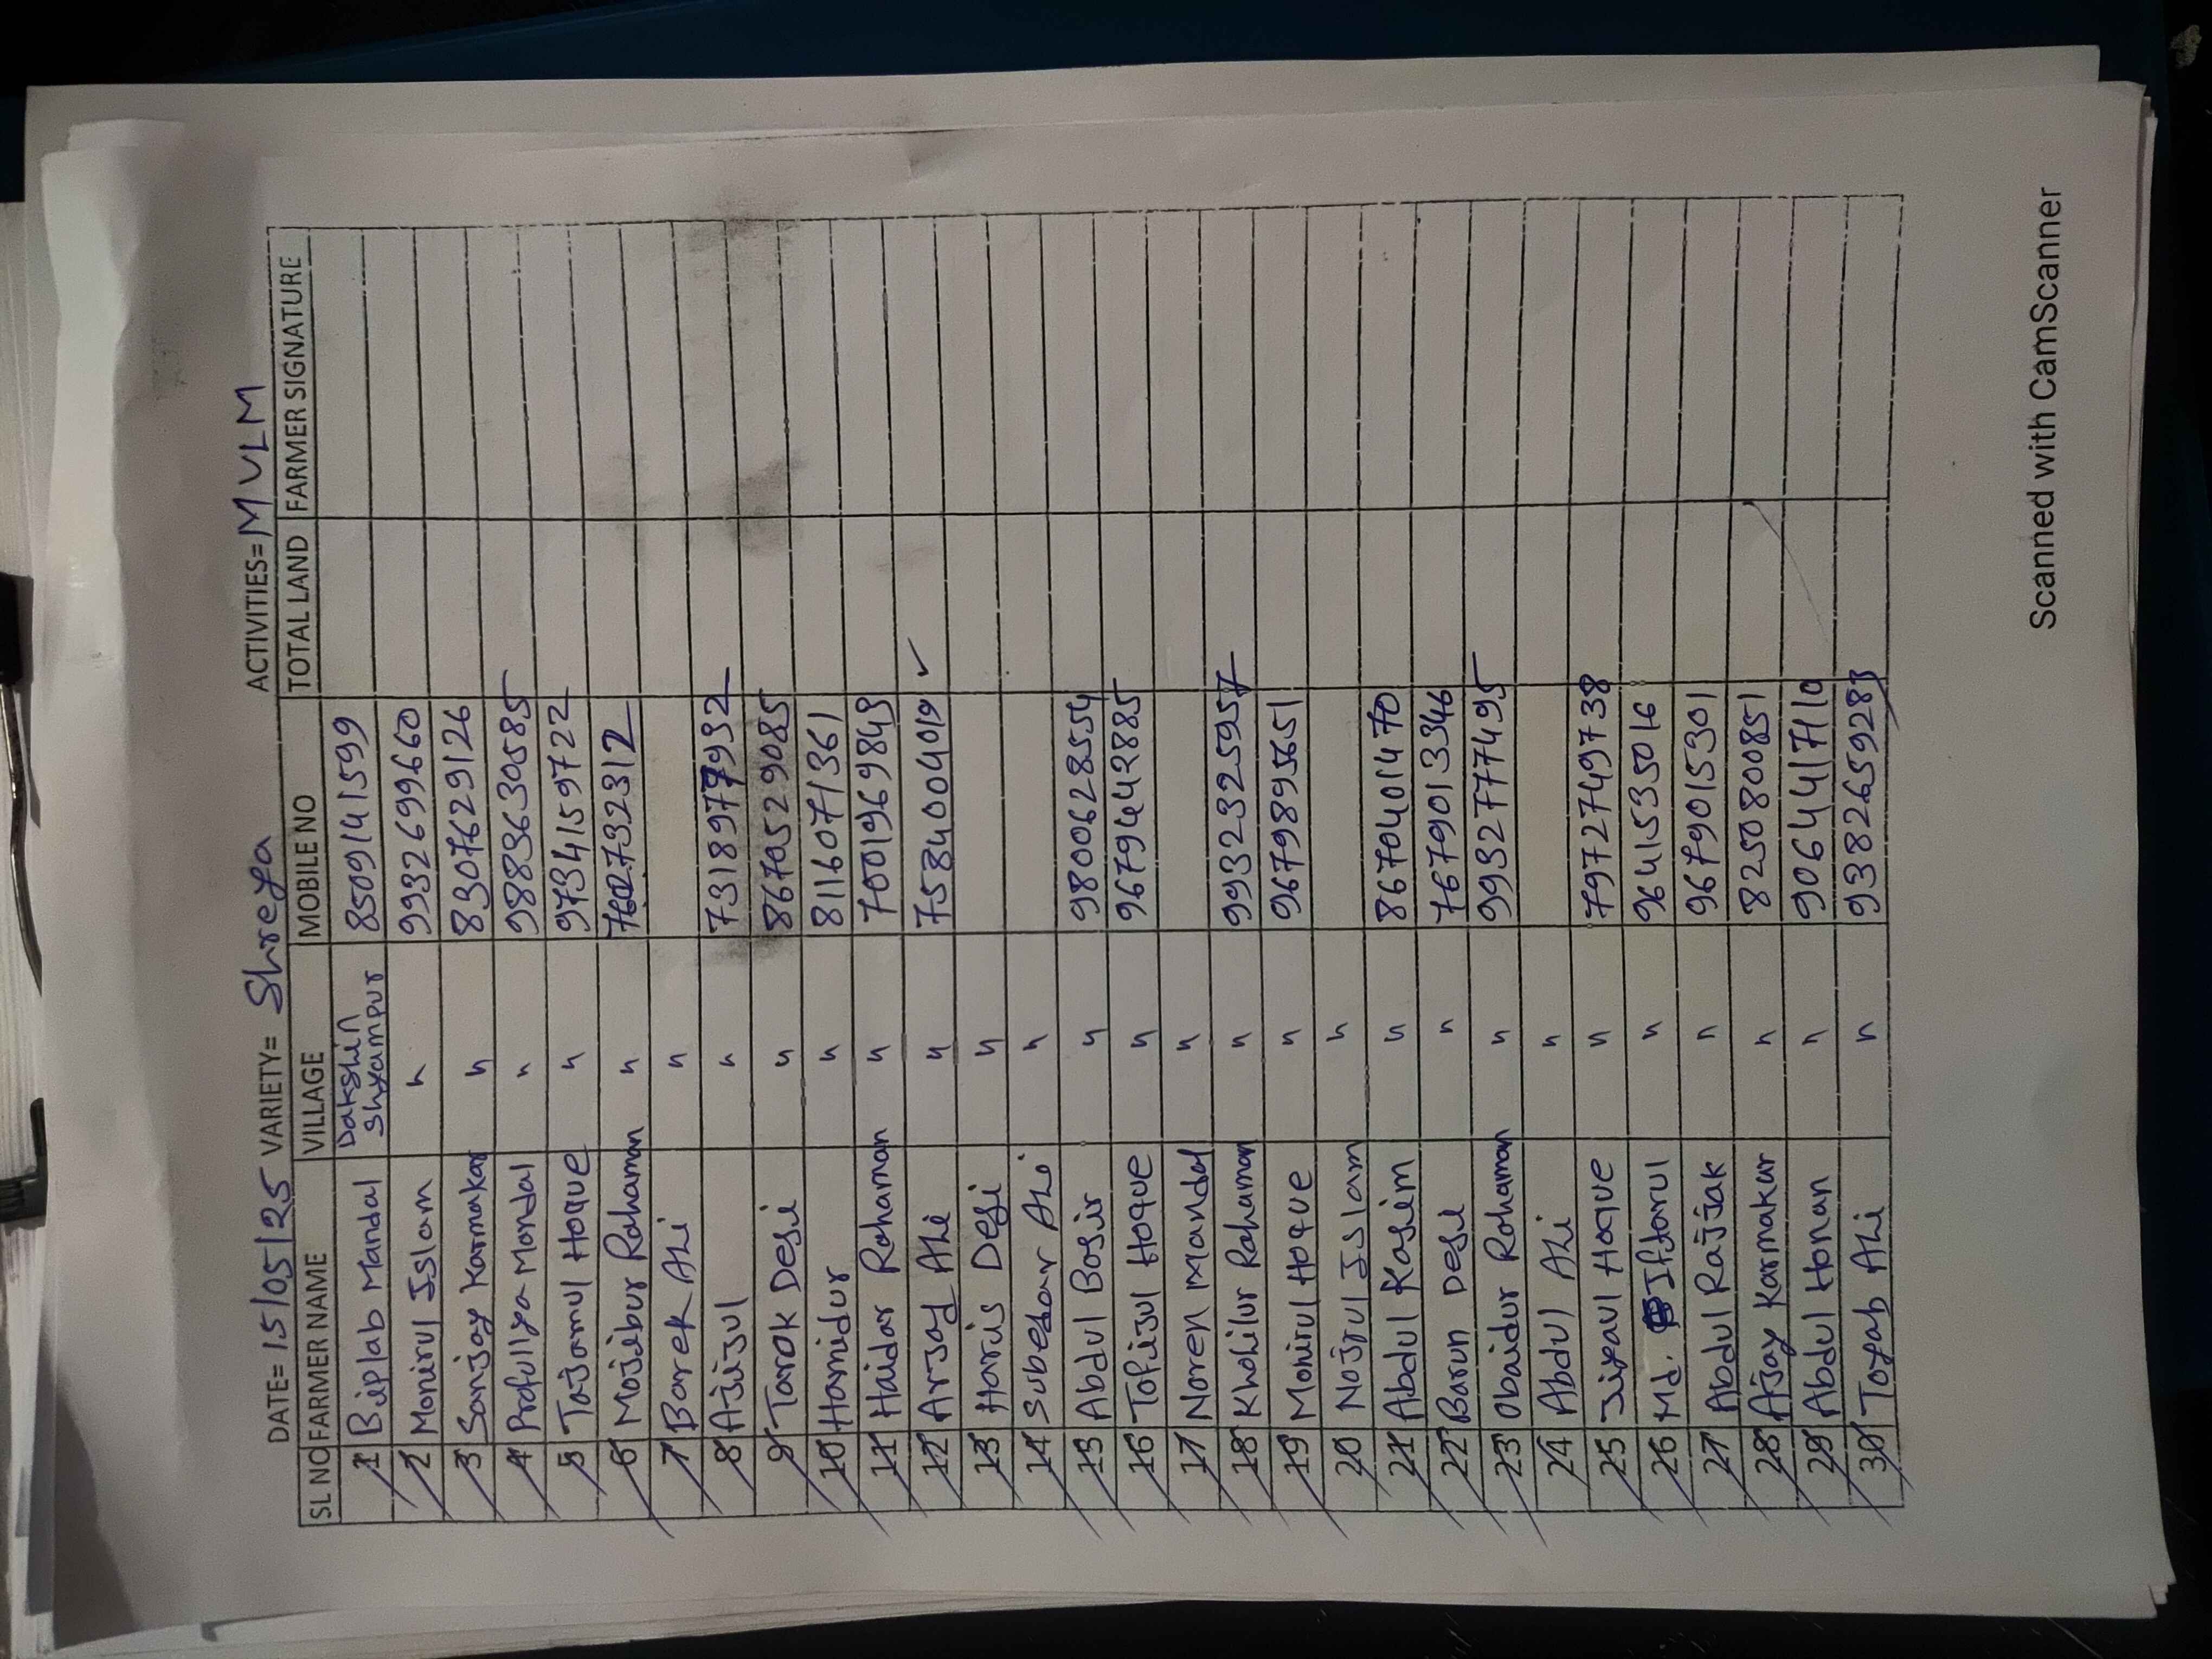 DATE= 15/05/25 VARIETY= Shreya ACTIVITIES= MVLM
SL NO FARMER NAME VILLAGE MOBILE NO TOTAL LAND FARMER SIGNATURE
1 Biplab Mandal Dakshin Shyampur 8509141599
2 Monirul Islam " 9932699660
3 Sanjay Karmakar " 8307629126
4 Profullya Mondal " 9883630585
5 Tajamul Hoque " 9734159722
6 Mojibur Rahaman " 7602732312
7 Barek Ali "
8 Ajijul " 7318977932
9 Tarok Desi " 8670529085
10 Hamidur " 8116071361
11 Haidar Rahaman " 7001969843
12 Arjad Ali " 7584004019 ✓
13 Haris Desi "
14 Ali "
15 Abdul Bosir " 9800628554
16 Tofijul Hoque " 9679442885
17 Noren Mandal "
18 Khohilur Rahaman " 9932325957
19 Monirul Hoque " 9679895651
20 Nojrul Islam "
21 Abdul Kasim " 8670401470
22 Barun Desi " 7679013346
23 Obaidur Rohaman " 9932777495
24 Abdul Ali "
25 Jiyaul Hoque " 7972749738
26 Md. Iftarul " 9641535016
27 Abdul Rajjak " 9679015301
28 Ajay Karmakar " 8250800851
29 Abdul Honan " 9064417110
30 Toyab Ali " 938265928
Scanned with CamScanner